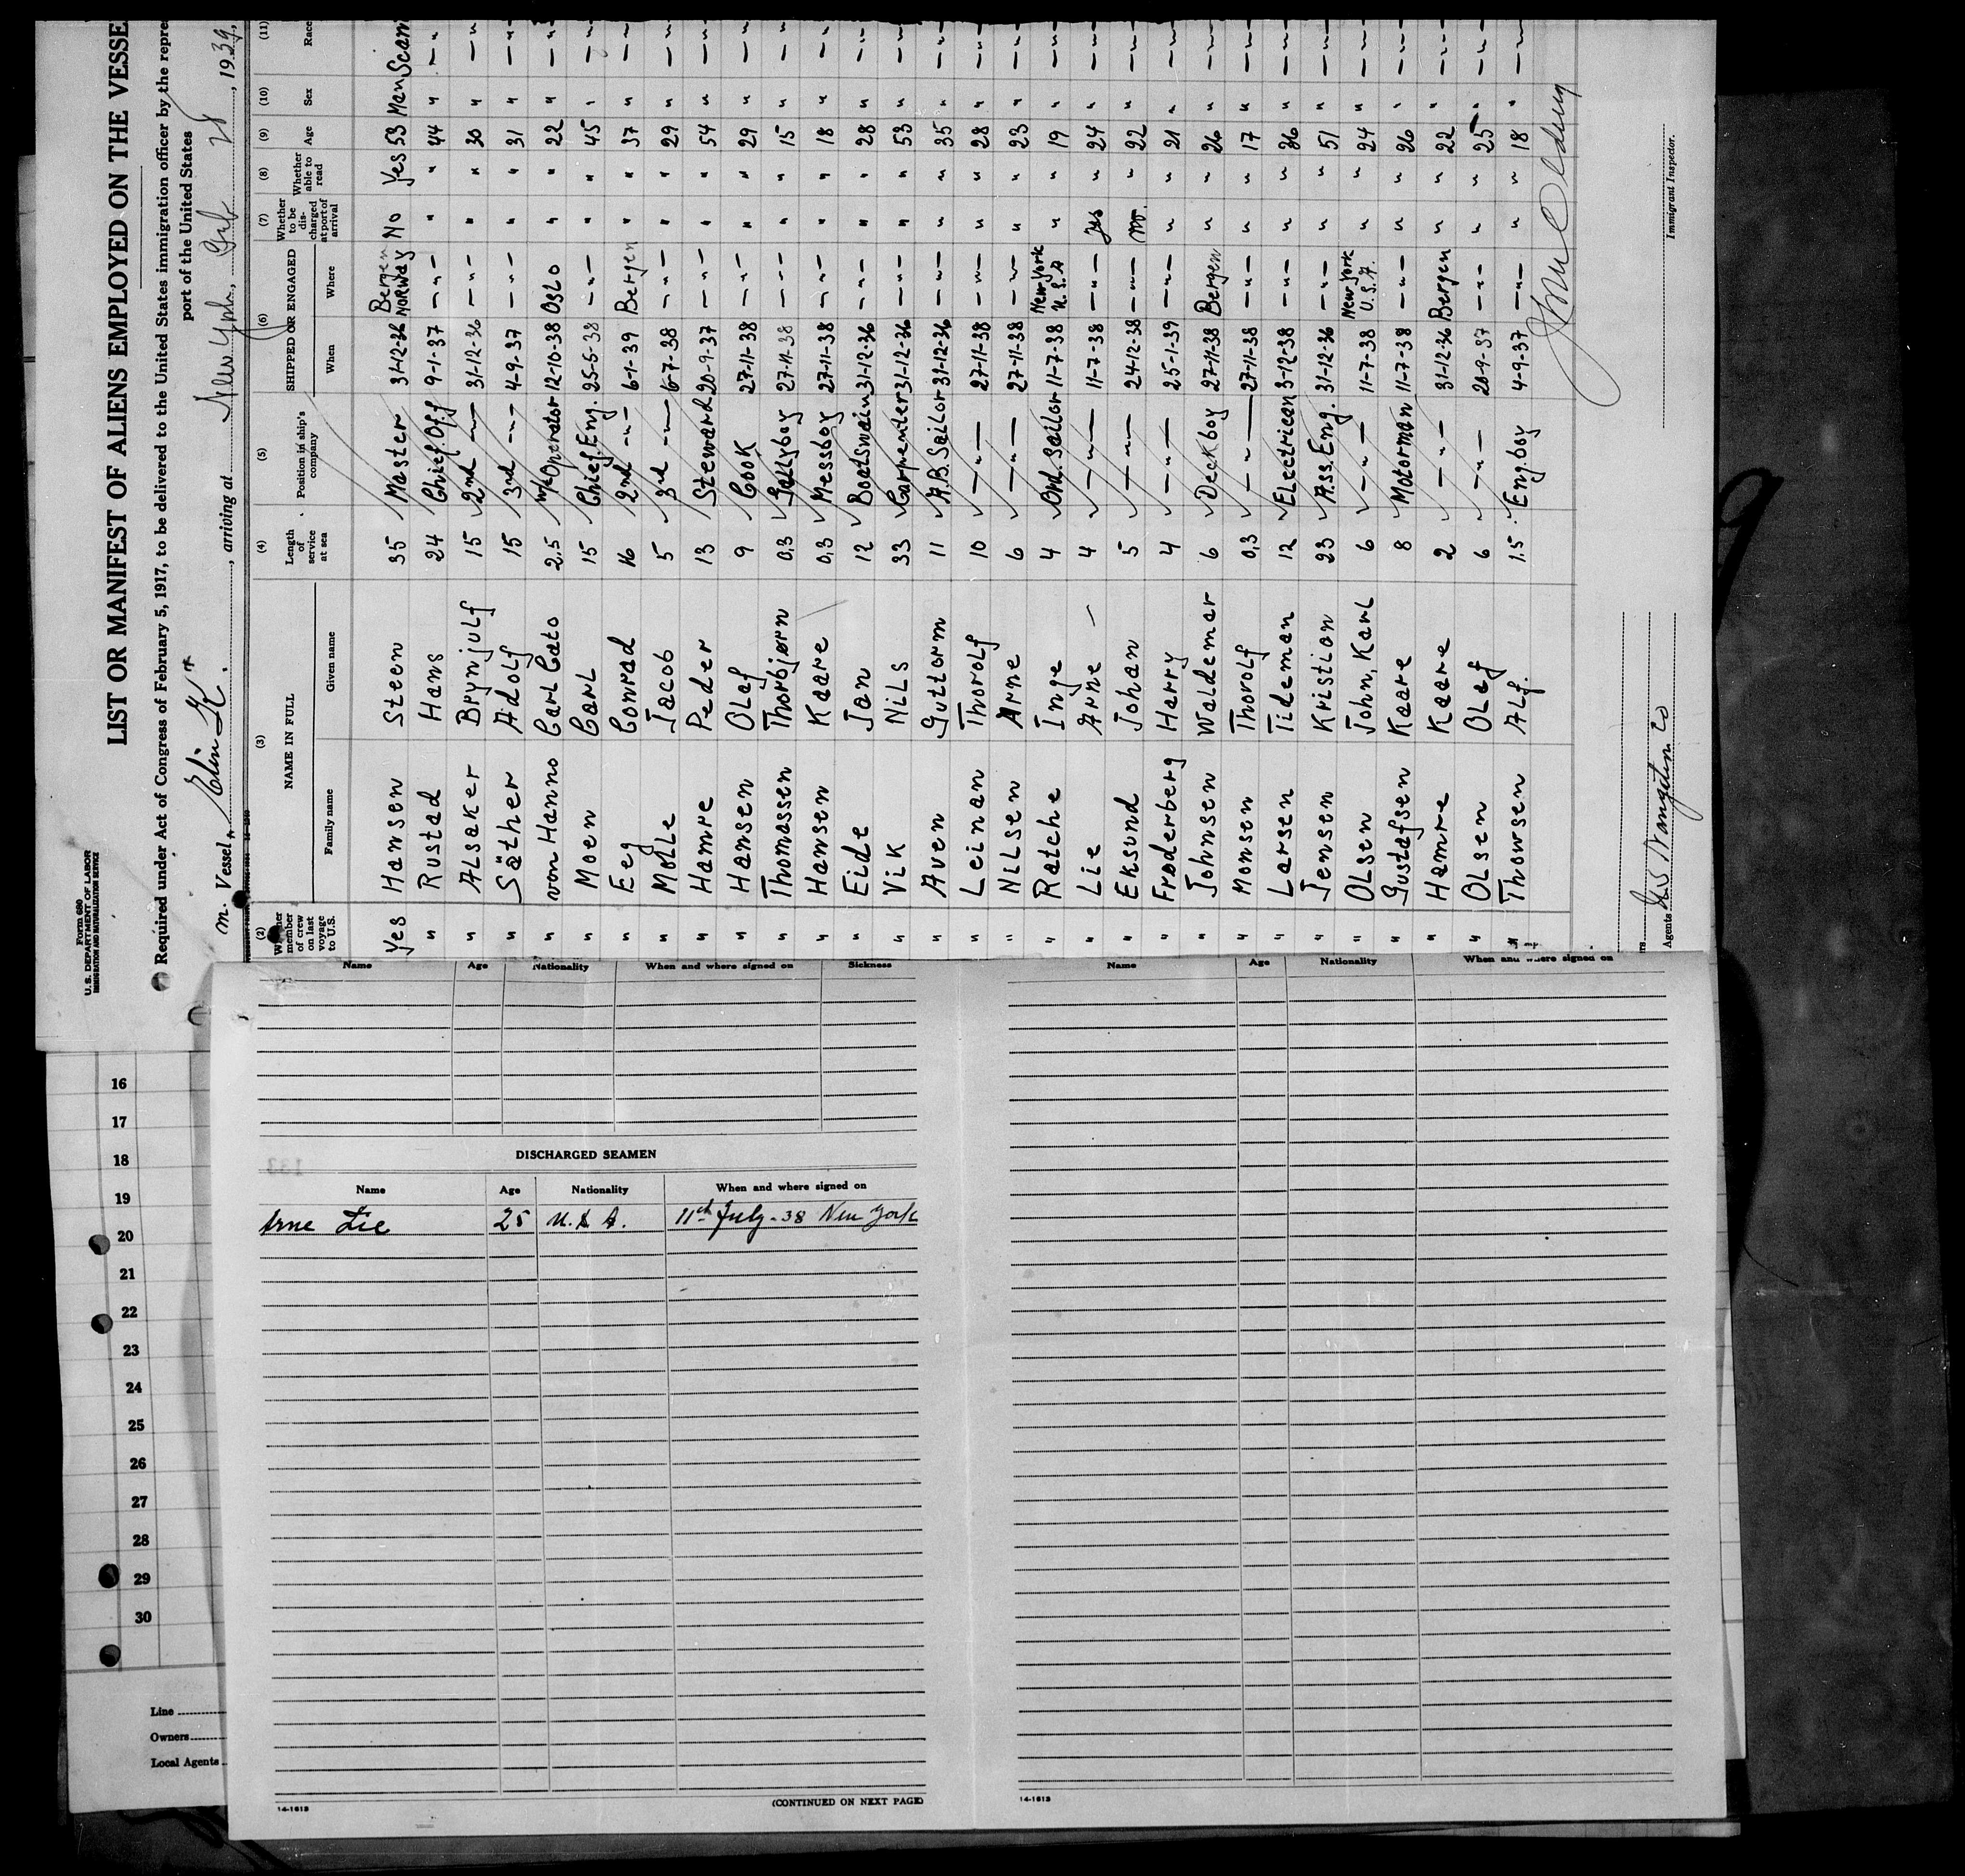 Form 680
U. S. DEPARTMENT OF LABOR
IMMIGRATION AND NATURALIZATION SERVICE
LIST OR MANIFEST OF ALIENS EMPLOYED ON THE VESSE
Required under Act of Congress of February 5, 1917, to be delivered to the United States immigration officer by the repre
port of the United States
m. Vessel, Elin K., arriving at New York, Feb 28, 1939,
(2) (3) (4) (5) (6) (7) (8) (9) (10) (11)
Whether member of crew on last voyage to U.S. NAME IN FULL Family name Given name Length of service at sea Position in ship's company SHIPPED OR ENGAGED When Where Whether to be discharged at port of arrival Whether able to read Age Sex Race
Yes Hansen Steen 35 Master 31-12-36 Bergen Norway No Yes 53 Man Scan
" Rustad Hans 24 Chief Off 9-1-37 -"- " " 44 " -"-
" Alsaker Brynjulf 15 2nd -"- 31-12-36 -"- " " 30 " -"-
" Säther Adolf 15 3rd -"- 4-9-37 -"- " " 31 " -"-
" von Hanno Carl Cato 2.5 Operator 12-10-38 Oslo " " 22 " -"-
" Moen Carl 15 Chief. Eng. 25-5-38 -"- " " 45 " -"-
" Eeg Conrad 16 2nd -"- 6-1-39 Bergen " " 37 " -"-
" Molle Jacob 5 3rd -"- 6-7-38 -"- " " 29 " -"-
" Hamre Peder 13 Steward 20-9-37 -"- " " 54 " -"-
" Hansen Olaf 9 Cook 27-11-38 -"- " " 29 " -"-
" Thomassen Thorbjørn 0,3 Gallyboy 27-11-38 -"- " " 15 " -"-
" Hansen Kaare 0,3 Messboy 27-11-38 -"- " " 18 " -"-
" Eide Jan 12 Boatswain 31-12-36 -"- " " 28 " -"-
" Vik Nils 33 Carpenter 31-12-36 -"- " " 53 " -"-
" Aven Guttorm 11 A.B. Sailor 31-12-36 -"- " " 35 " -"-
" Leinan Thorolf 10 -"- 27-11-38 -"- " " 28 " -"-
" Nilsen Arne 6 -"- 27-11-38 -"- " " 23 " -"-
" Ratche Inge 4 Ord. Sailor 11-7-38 New York U.S.A " " 19 " -"-
" Lie Arne 4 -"- 11-7-38 -"- Yes " 24 " -"-
" Eksund Johan 5 -"- 24-12-38 -"- no. " 22 " -"-
" Frøderberg Harry 4 -"- 25-1-39 -"- " " 21 " -"-
" Johnsen Waldemar 6 Deckboy 27-11-38 Bergen " " 26 " -"-
" Monsen Thorolf 0,3 -"- 27-11-38 -"- " " 17 " -"-
" Larsen Tideman 12 Electrican 3-12-38 -"- " " 36 " -"-
" Jensen Kristion 23 Ass. Eng. 31-12-36 -"- " " 51 " -"-
" Olsen John, Karl 6 -"- 11-7-38 New York U.S.A. " " 24 " -"-
" Gustafsen Kaare 8 Motorman 11-7-38 -"- " " 26 " -"-
" Hamre Kaare 2 -"- 31-12-36 Bergen " " 22 " -"-
" Olsen Olaf 6 -"- 20-9-37 -"- " " 25 " -"-
" Thowsen Alf. 1.5 Eng. boy 4-9-37 -"- " " 18 " -"-
Agents
Immigrant Inspector.
Name Age Nationality When and where signed on Sickness
DISCHARGED SEAMEN
Name Age Nationality When and where signed on
Arne Lie 25 U.S A. 11th July - 38 New York
14-1613
(CONTINUED ON NEXT PAGE)
Name Age Nationality When and where signed on
14-1613
16
17
18
19
20
21
22
23
24
25
26
27
28
29
30
Line
Owners
Local Agents